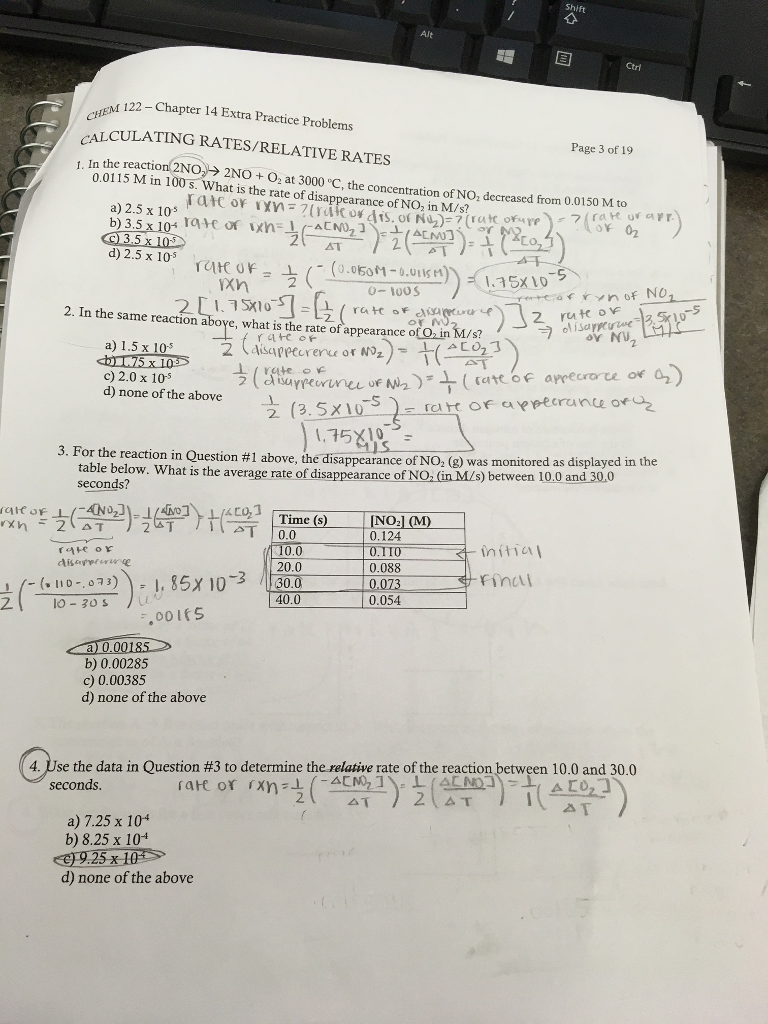 Shift
Alt
Ctrl
CHEM 122 – Chapter 14 Extra Practice Problems
Page 3 of 19
CALCULATING RATES/RELATIVE RATES
1. In the reaction 2NO₂ → 2NO + O₂ at 3000 °C, the concentration of NO₂ decreased from 0.0150 M to
0.0115 M in 100 s. What is the rate of disappearance of NO₂ in M/s?
rate of rxn = ?(rate of dis. of NO₂) = ?(rate of app of NO) = ?(rate of app. of O₂)
a) 2.5 x 10⁻⁵
b) 3.5 x 10⁻⁴
rate of rxn = 1/2 (-Δ[NO₂]/ΔT) = 1/2 (Δ[NO]/ΔT) = 1/1 (Δ[O₂]/ΔT)
c) 3.5 x 10⁻⁵
d) 2.5 x 10⁻⁵
rate of rxn = 1/2 (-(0.0150M-0.0115M)/0-100s) = 1.75X10⁻⁵
rate of rxn of NO₂
2 [1.75X10⁻⁵] = [1/2 (rate of disappearance of NO₂)] 2 ⇒ rate of disappearance of NO₂ = 3.5x10⁻⁵ M/s
2. In the same reaction above, what is the rate of appearance of O₂ in M/s?
1/2 (rate of disappecrence of NO₂) = 1/1 (Δ[O₂]/ΔT)
a) 1.5 x 10⁻⁵
b) 1.75 x 10⁻⁵
c) 2.0 x 10⁻⁵
1/2 (rate of disappearance of NO₂) = 1/1 (rate of appecrance of O₂)
d) none of the above
1/2 (3.5X10⁻⁵) = rate of appecrance of O₂
1.75X10⁻⁵ M/S =
3. For the reaction in Question #1 above, the disappearance of NO₂ (g) was monitored as displayed in the
table below. What is the average rate of disappearance of NO₂ (in M/s) between 10.0 and 30.0
seconds?
rate of rxn = 1/2 (-Δ[NO₂]/ΔT) = 1/2 (Δ[NO]/ΔT) = 1/1 (Δ[O₂]/ΔT)
rate of
disappearance
Time (s) [NO₂] (M)
0.0 0.124
10.0 0.110 ← initial
20.0 0.088
30.0 0.073 ← Final
40.0 0.054
1/2 (-(.110-.073)/10-30s) = 1.85X10⁻³
= .00185
a) 0.00185
b) 0.00285
c) 0.00385
d) none of the above
4. Use the data in Question #3 to determine the relative rate of the reaction between 10.0 and 30.0
seconds.
rate of rxn = 1/2 (-Δ[NO₂]/ΔT) = 1/2 (Δ[NO]/ΔT) = 1/1 (Δ[O₂]/ΔT)
a) 7.25 x 10⁻⁴
b) 8.25 x 10⁻⁴
c) 9.25 x 10⁻⁴
d) none of the above